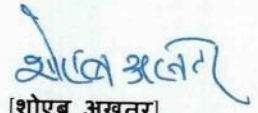 शोएब अख्तर
[शोएब अखतर]